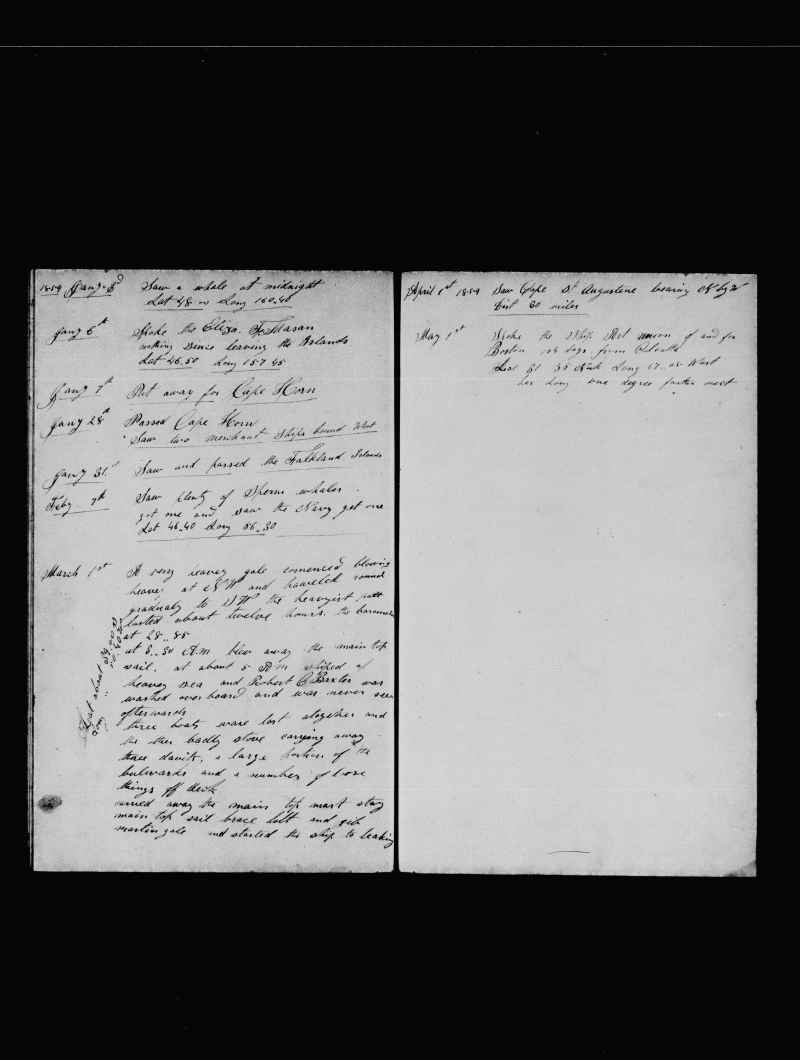 1859 Jany 3d Saw a whale at midnight
Lat 48 Long 160-40
Jany 6th Spoke the Eliza. F. Mason
nothing Since leaving the Islands
Lat 46.50 Long 157 45
Jany 7th Put away for Cape Horn
Jany 28th Passed Cape Horn
Saw two merchant Ships bound West
Jany 31st Saw and passed the Falkland Islands
Feby 7th Saw plenty of Sperm whales.
got one and saw the Navy get one
Lat 46-40 Long 56-30
March 1st A very heavey gale comenced blowing
heavey at NW and hawled round
gradualy to SW the heavyist part
lasted about twelve hours. the barometer
at 28..85
at 3..30 A.m blew away the main top
sail. at about 5 A.m shiped
heavey sea and Robert C Baxter was
washed overboard and was never seen
afterwards
three boats ware lost altogether and
the badly stove carrying away
three davits, a large portion of the
bulwarks and a number of loose
things off deck
carried away the main top mast stay
main top sail brace bolt and gib
martingale and started the ship to leaking
Lat about
Long
April 1st 1859 Saw Cape St Augustene bearing N by W
Dist 30 miles
May 1st Spoke the Ship union of and for
Boston 104 days from Calcutta
Long West
her Long one degree farther west